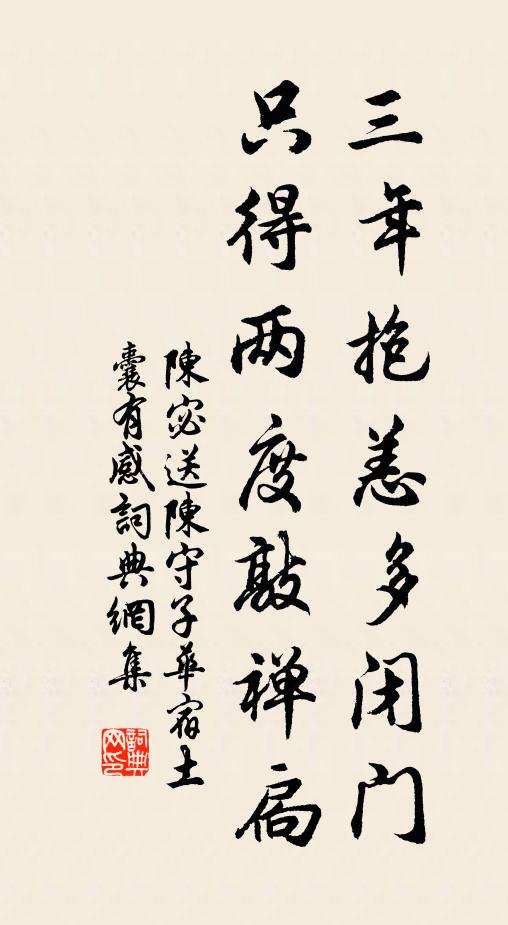 三年抱恙多闭门
只得两度敲禅扃
陳宓送陳守子華宿土
囊有感詞典網集
詞典网印